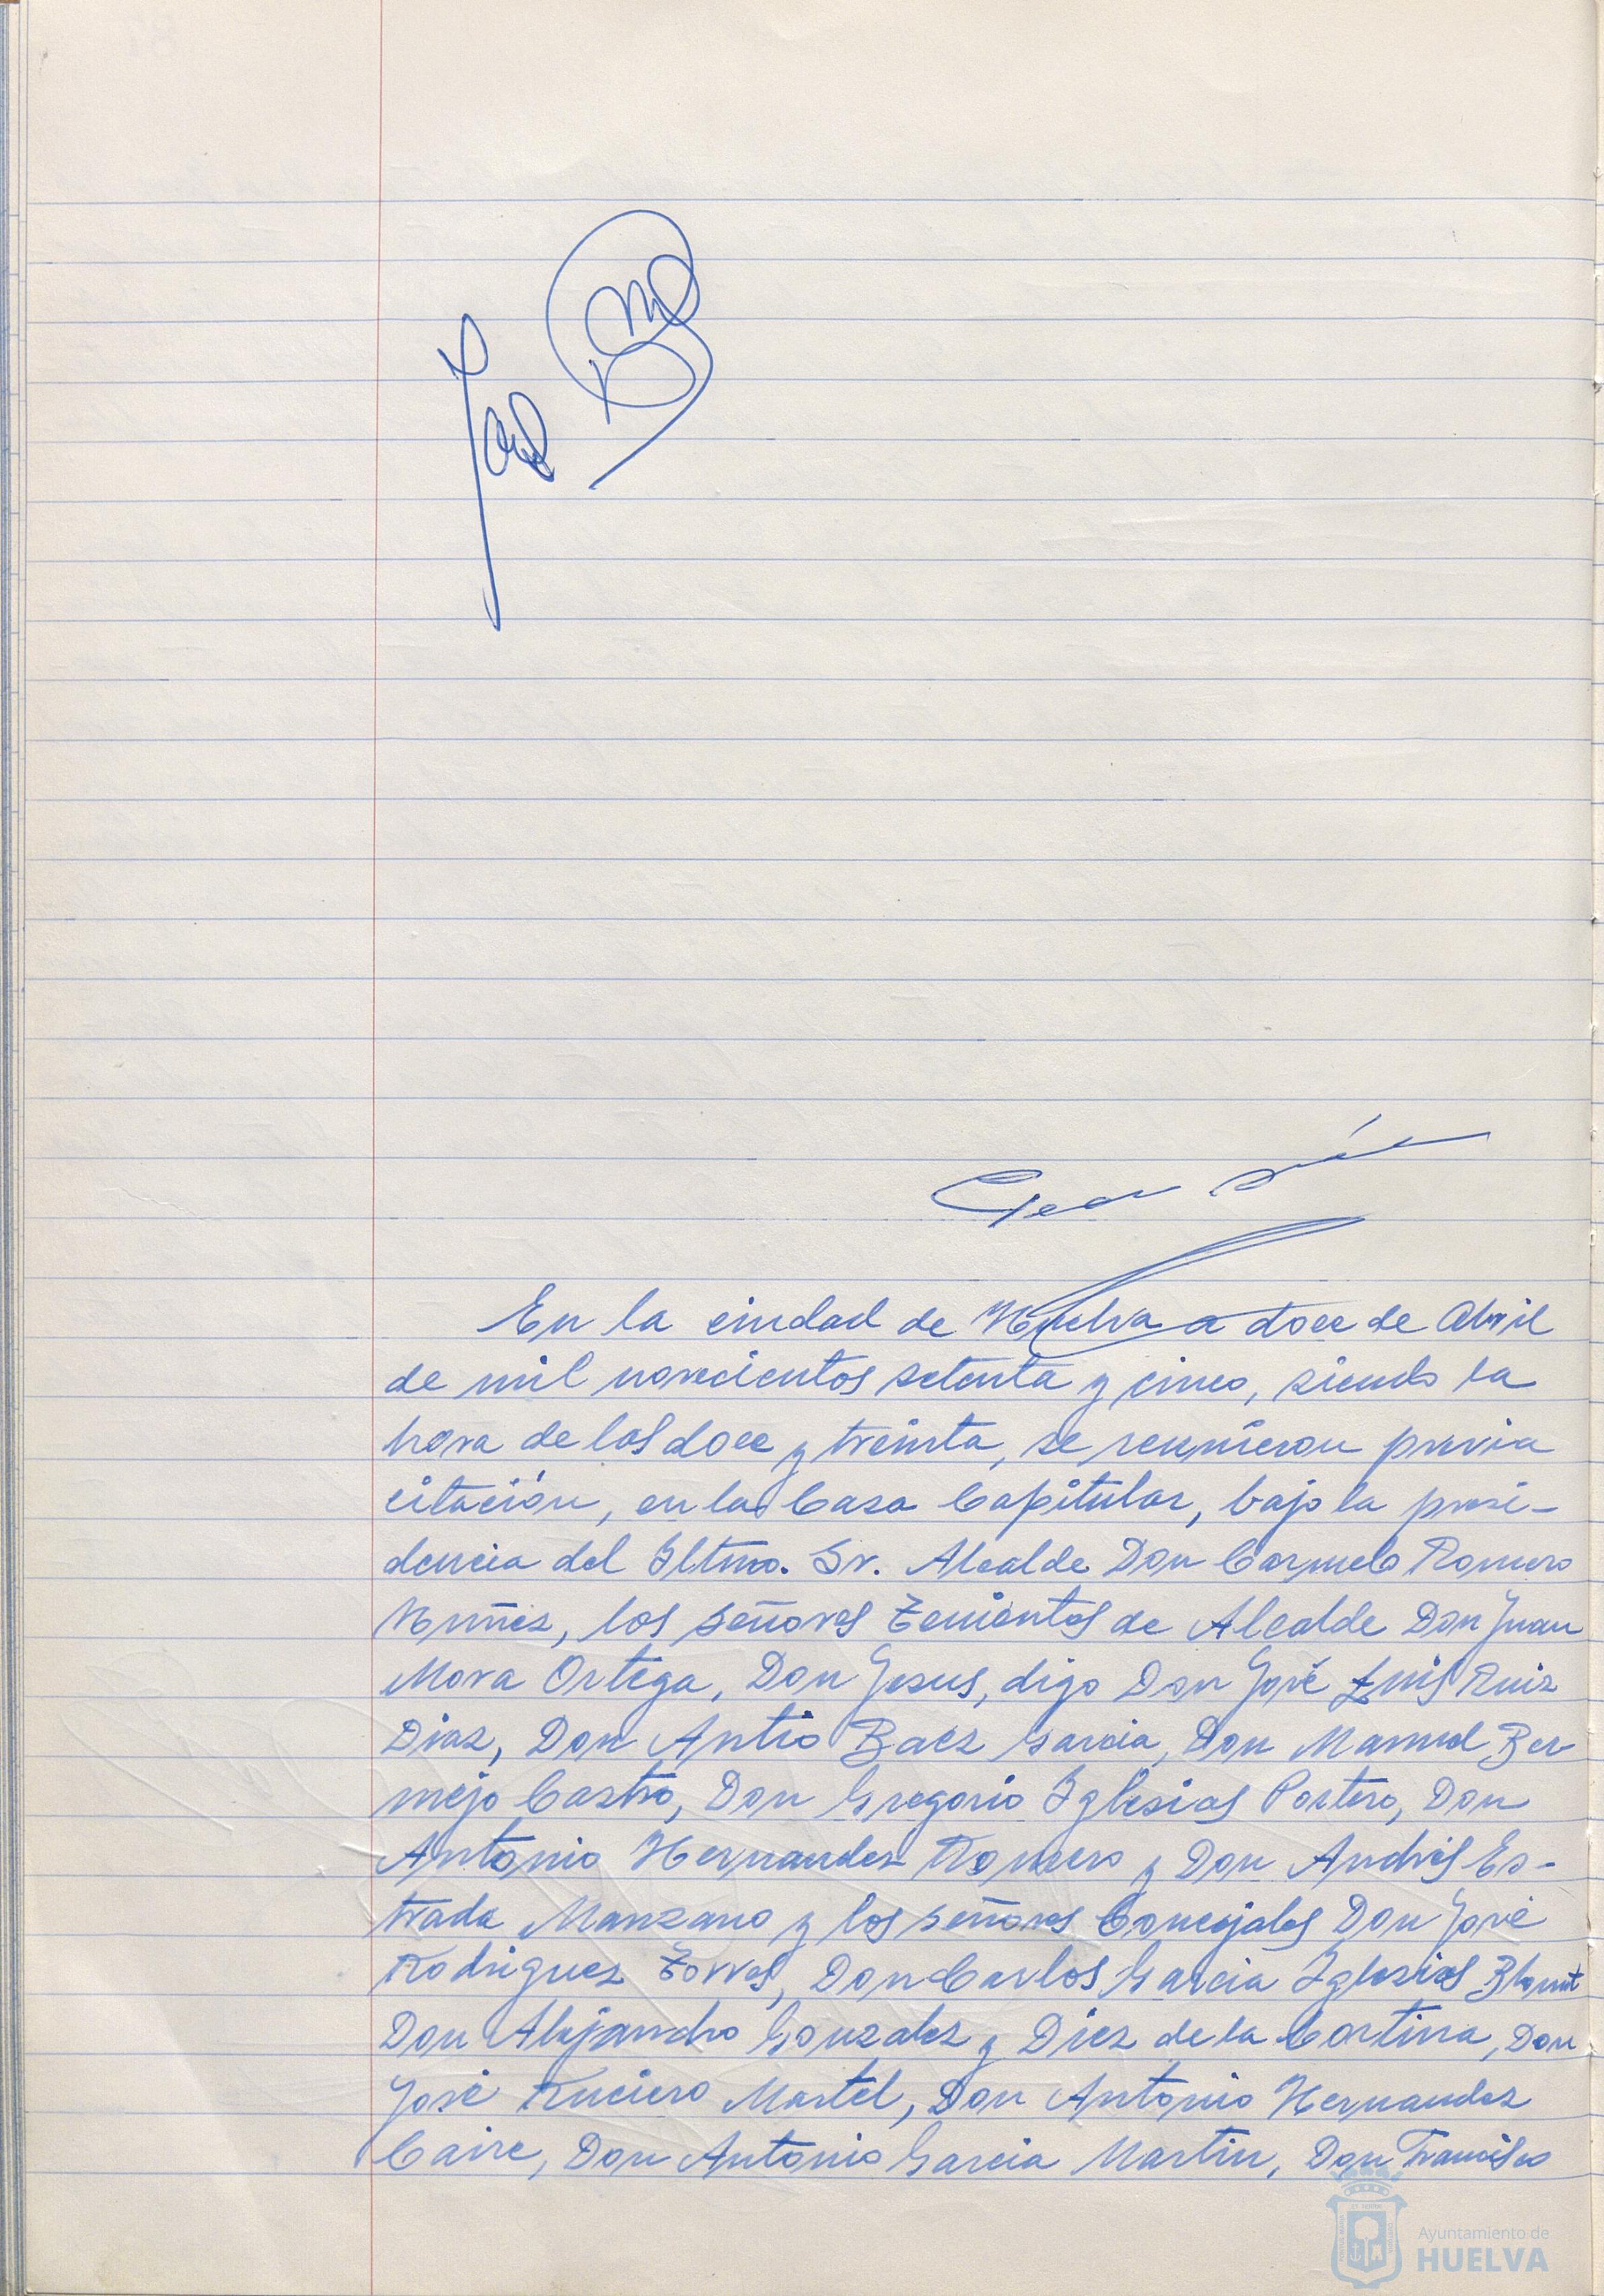 En la ciudad de Huelva a doce de Abril
de mil novecientos setenta y cinco, siendo la
hora de las doce y treinta, se reunieron previa
citación, en la Casa Capitular, bajo la presi-
dencia del Iltmo. Sr. Alcalde Don Carmelo Romero
Nuñez, los señores Tenientes de Alcalde Don Juan
Mora Ortega, Don Jesus, digo Don José Luis Ruiz
Diaz, Don Antio Baez Garcia, Don Manuel Ber-
mejo Castro, Don Gregorio Iglesias Portero, Don
Antonio Hernandez Romero y Don Andrés Es-
trada Manzano y los señores Concejales Don José
Rodriguez Torres, Don Carlos Garcia Iglesias
Don Alejandro Gonzalez y Diez de la Cortina, Don
José Ruciero Martel, Don Antonio Hernandez
Caire, Don Antonio Garcia Martin, Don Francisco
Ayuntamiento de
HUELVA